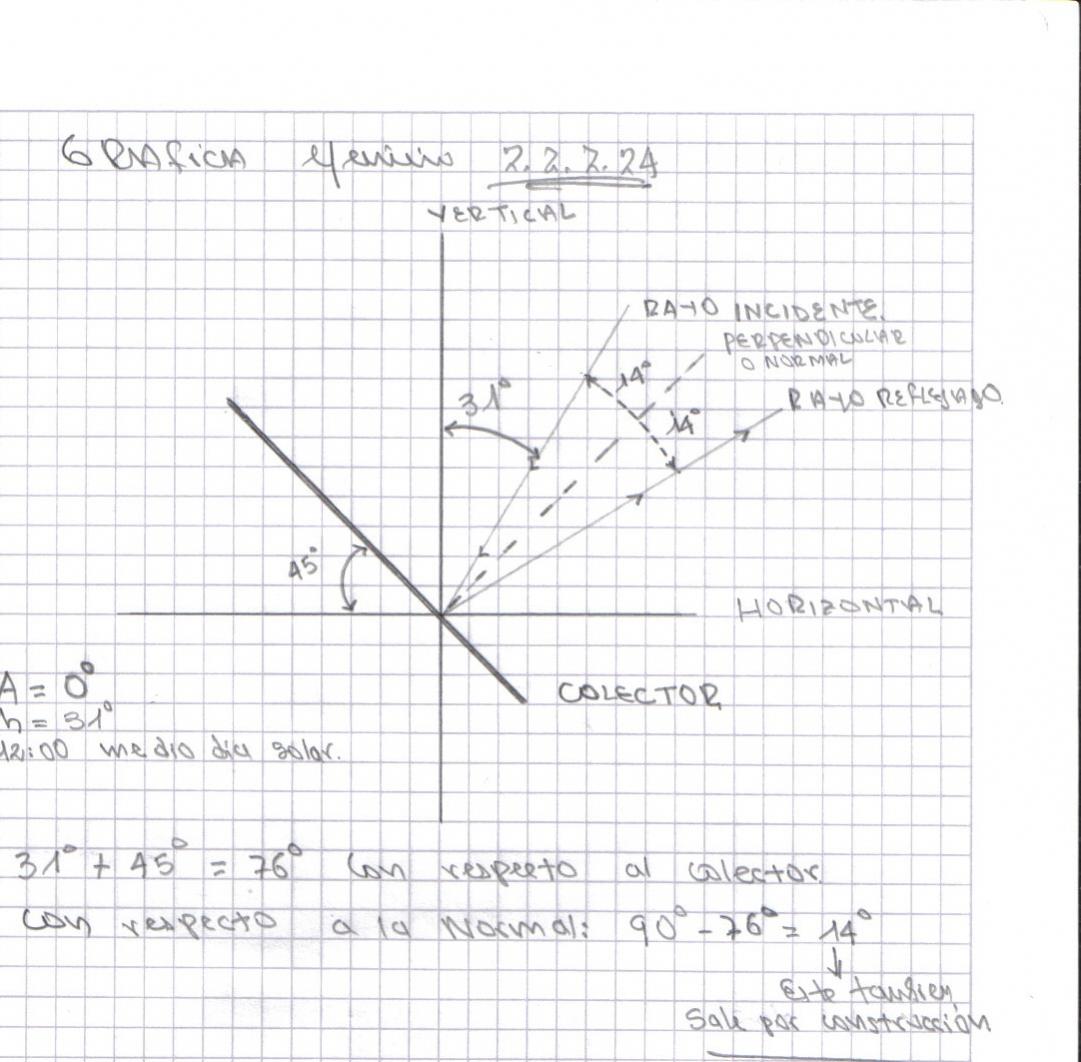 GRAFICA ejercicio 2.2.2.24
VERTICAL
RAYO INCIDENTE.
PERPENDICULAR
O NORMAL
RAYO REFLEJADO.
14°
14°
31°
45°
HORIZONTAL
COLECTOR
A = 0°
h = 31°
12:00 medio día solar.
31° + 45° = 76° con respecto al colector.
con respecto a la Normal: 90° - 76° = 14°
↓
Este tambien
Sale por construcción